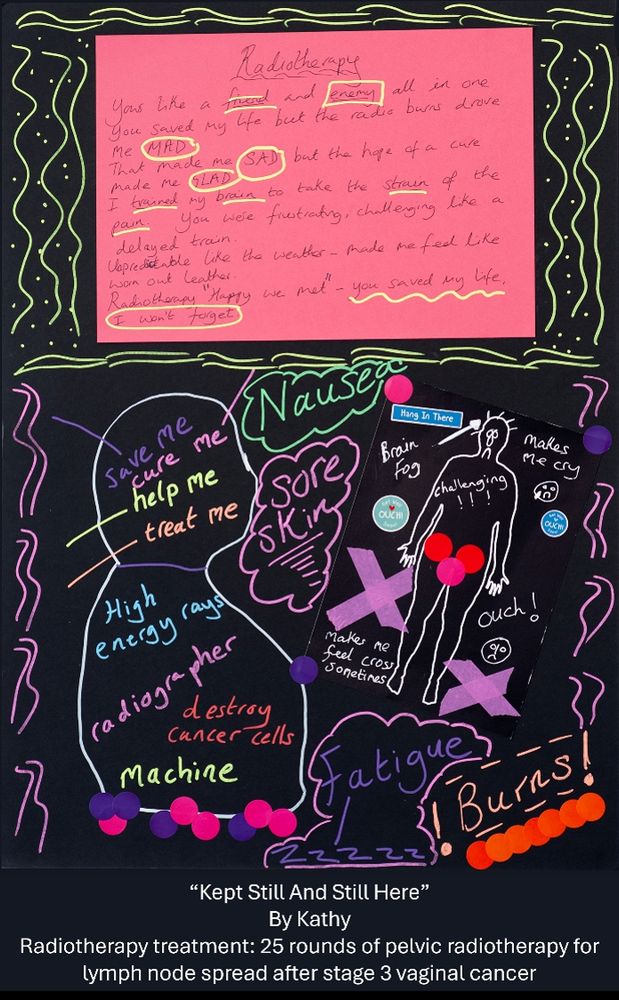 Radiotherapy
Your like a friend and enemy all in one
You saved my life but the radio burns drove
me MAD
That made me SAD but the hope of a cure
made me GLAD
I trained my brain to take the strain of the
pain. You were frustrating, challenging like a
delayed train.
like the weather - made me feel like
worn out leather.
Radiotherapy "Happy we met" - you saved my life,
I won't forget
Nausea
save me
cure me
help me
treat me
sore
skin
Hang In There
Brain
Fog
makes
me cry
challenging
!!!
OUCH!
OUCH!
Ouch!
makes me
feel cross
sometimes
High
energy rays
radiographer
destroy
cancer cells
Machine
Fatigue
zzzzzz
!Burns!
“Kept Still And Still Here”
By Kathy
Radiotherapy treatment: 25 rounds of pelvic radiotherapy for
lymph node spread after stage 3 vaginal cancer